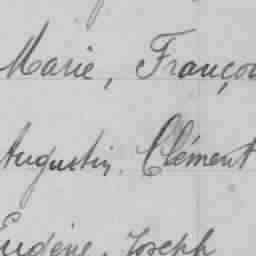 Marie, Françoi
Augustin. Clément
Eugène. Joseph